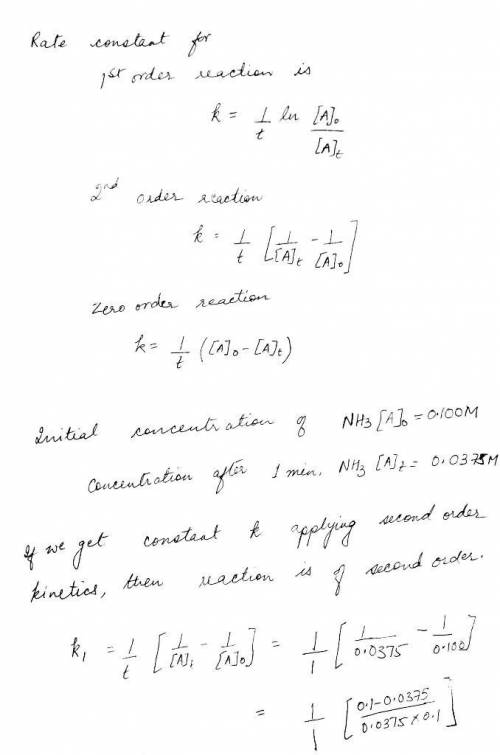 Rate constant for
1st order reaction is
k = 1/t ln [A]₀/[A]t
2nd order reaction
k = 1/t [1/[A]t - 1/[A]₀]
Zero order reaction
k = 1/t ([A]₀ - [A]t)
Initial concentration of NH3 [A]₀ = 0.100M
Concentration after 1 min, NH3 [A]t = 0.0375M
If we get constant k applying second order
kinetics, then reaction is of second order.
k₁ = 1/t [1/[A]₁ - 1/[A]₀] = 1/1 [1/0.0375 - 1/0.100]
= 1/1 [0.1-0.0375/0.0375×0.1]